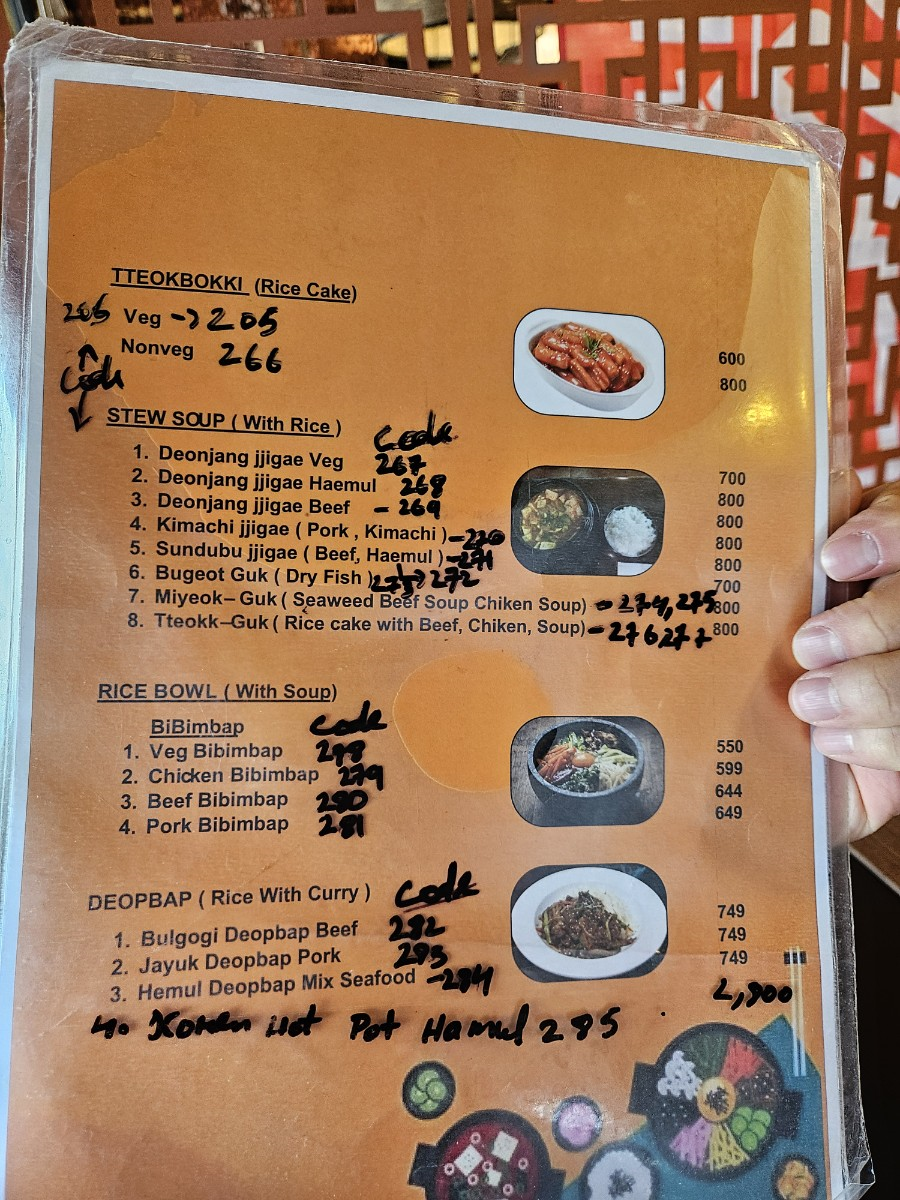 TTEOKBOKKI (Rice Cake)
265 Veg -> 205 600
Nonveg 266 800
Code
STEW SOUP ( With Rice ) Code
1. Deonjang jjigae Veg 267 700
2. Deonjang jjigae Haemul 268 800
3. Deonjang jjigae Beef - 269 800
4. Kimachi jjigae ( Pork , Kimachi ) - 270 800
5. Sundubu jjigae ( Beef, Haemul ) - 271 800
6. Bugeot Guk ( Dry Fish ) 272 700
7. Miyeok– Guk ( Seaweed Beef Soup Chiken Soup) - 274, 275 800
8. Tteokk–Guk ( Rice cake with Beef, Chiken, Soup) - 276,277 800
RICE BOWL ( With Soup)
BiBimbap Code
1. Veg Bibimbap 278 550
2. Chicken Bibimbap 279 599
3. Beef Bibimbap 280 644
4. Pork Bibimbap 281 649
DEOPBAP ( Rice With Curry ) Code
1. Bulgogi Deopbap Beef 282 749
2. Jayuk Deopbap Pork 283 749
3. Hemul Deopbap Mix Seafood - 284 749
4. Koren Hot Pot Hamul 285